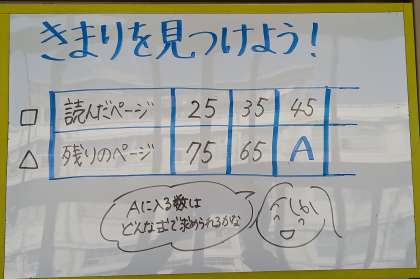 きまりを見つけよう!
□ 読んだページ 25 35 45
△ 残りのページ 75 65 A
Aに入る数は
どんな式で求められるかな